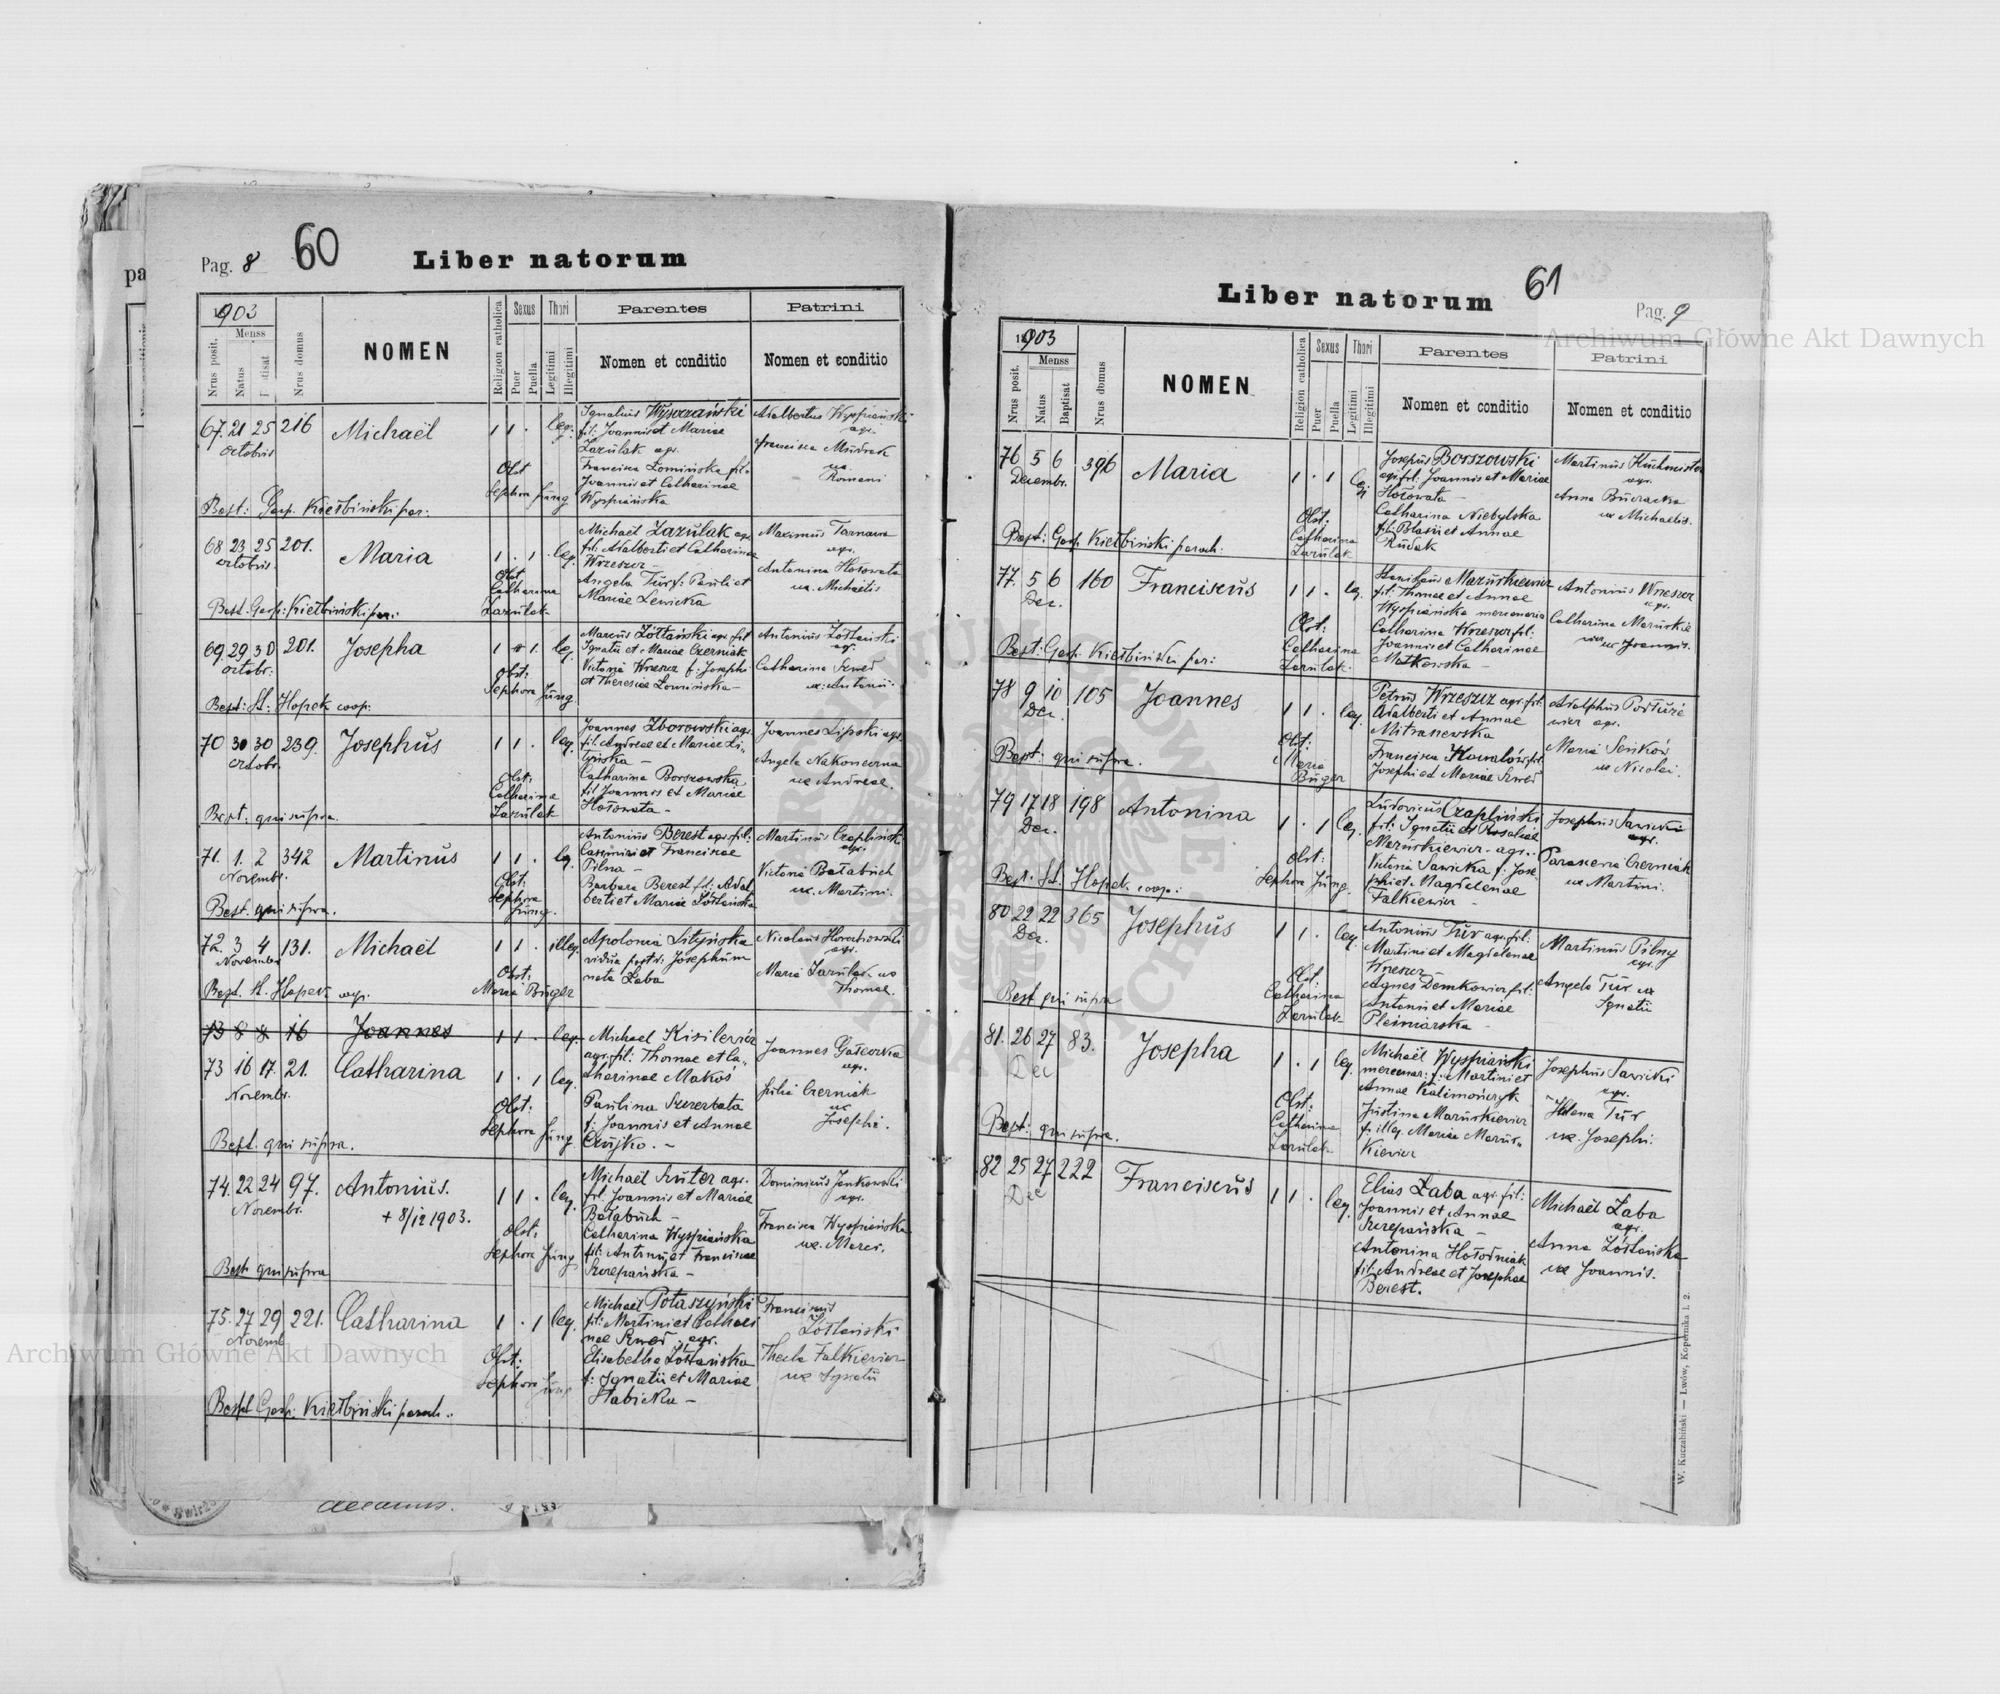 Pag. 8
60
Liber natorum
1903
Menss
Nrus posit.
Natus
Nrus domus
NOMEN
Religion catholica
Sexus
Puer
Puella
Thori
Legitimi
Illegitimi
Parentes
Nomen et conditio
Patrini
Nomen et conditio
67. 21 25 216 Michaël 1 1 . leg.
Octobris
Ignatius Wysoczański
fil: Joannis et Mariae
Zazulak agr.
Francisca Łomińska fil:
Joannis et Catharinae
Wyspiańska
Adalbertus Wyspiański
agr.
Francisca Mudrak
ux.
Romani
Obst
Sephora Jüng
Bapt: Gasp. Kiełbiński par:
68 23 25 201. Maria 1 . 1 . leg.
Octobris
Michaël Zazulak agr.
fil: Adalberti et Catharinae
Wrzeszcz –
Angela Tur f: Pauli et
Mariae Lewicka
Maximus Tarnawa
agr.
Antonina Hołowata
ux. Michaelis
Obst
Catharina
Zazulak
Bapt. Gasp. Kiełbiński par:
69. 29 30 201. Josepha 1 . 1 . leg.
Octobr:
Marcus Żółtański agr. fil
Ignatii et Mariae Czerniak
Victoria Wrzeszcz f: Josephi
et Theresiae Łomińska –
Antonius Żółtański
agr.
Catharina Szwed
ux: Antonii.
Obst:
Sephora Jüng
Bapt: St: Hopek coop:
70 30 30 239. Josephus 1 1 . leg.
Octobr.
Joannes Zborowski agr.
fil. Andreae et Mariae Li-
tyńska –
Catharina Borszowska
fil Joannis et Mariae
Hołowata –
Joannes Lipski agr.
Angela Nakoneczna
ux Andreae.
Obst:
Catharina
Zazulak
Bapt: qui supra.
71. 1. 2 342 Martinus 1 1 . leg.
Novembr.
Antonius Berest agr. fil:
Casimiri et Franciscae
Pilna –
Barbara Berest fil: Adal
berti et Mariae Żółtańska
Martinus Czapliński
agr.
Victoria Bałabuch
ux. Martini.
Obst:
Sephora
Jüng.
Bapt. qui supra.
72. 3 4 131. Michaël 1 1 . illeg.
Novembr
Apolonia Lityńska
vidua post d: Josephum
nata Żaba
Nicolaus Horochowski
agr.
Maria Zazulak ux
Thomae.
Obst:
Maria Büger
Bapt. St. Hopek coop.
73 8 8 16 Joannes 1 1 . leg.
73 16 17. 21. Catharina 1 . 1 leg.
Novembr.
Michael Kisilewicz
agr. fil: Thomae et Ca-
tharinae Makoś
Paulina Szczerbata
f: Joannis et Annae
Czujko. –
Joannes Gałeczka
agr.
Julia Czerniak
ux
Josephi.
Obst:
Sephora Jüng
Bapt. qui supra.
74. 22 24 97. Antonius. 1 1 . leg.
Novembr.
+ 8/12 1903.
Michaël Szuter agr.
fil. Joannis et Mariae
Bałabuch –
Catharina Wyspiańska
fil: Antonii et Franciscae
Szczepańska –
Dominicus Jankowski
agr.
Francisca Wyspiańska
ux. Marci.
Obst:
Sephora Jüng
Bapt qui supra
75. 27 29 221. Catharina 1 . 1 leg.
Novemb
Michaël Potaszyński
fil: Martini et Cathari
nae Szwed . agr.
Elisabetha Żółtańska
f: Ignatii et Mariae
Słabicka –
Franciscus
Żółtański
Thecla Falkiewicz
ux Ignatii
Obst:
Sephora Jüng
Bapt Gasp: Kiełbiński paroch.
61
Liber natorum
Pag. 9
1903
Menss
Nrus posit.
Natus
Baptisat
Nrus domus
NOMEN
Religion catholica
Sexus
Puer
Puella
Thori
Legitimi
Illegitimi
Parentes
Nomen et conditio
Patrini
Nomen et conditio
76 5 6 396 Maria 1 . 1 leg
Decembr.
Josephus Borszowski
agr. fil: Joannis et Mariae
Hołowata –
Catharina Niebylska
fil: Blasii et Annae
Rudak
Martinus Kuchmister
agr.
Anna Budzacka
ux Michaelis.
Obst:
Catharina
Zazulak
Bapt: Gasp Kiełbiński paroch:
77. 5 6 160 Franciscus 1 1 . leg.
Dec.
Stanislaus Mazurkiewicz
fil: Thomae et Annae
Wyspiańska mercenaria
Catharina Wrzeszcz fil:
Joannis et Catharinae
Matkowska –
Antonius Wrzeszcz
agr.
Catharina Mazurkie
wicz ux Joannis.
Obst:
Catharina
Zazulak
Bapt: Gasp Kiełbiński par:
78 9 10 105 Joannes 1 1 . leg.
Dec.
Petrus Wrzeszcz agr. fil.
Adalberti et Annae
Mitranewska
Francisca Kowalów fil.
Josephi et Mariae Szwed
Adolphus Porture
wicz agr.
Maria Seńków
ux Nicolai.
Obst:
Maria
Büger
Bapt: qui supra.
79 17 18 198 Antonina 1 . 1 leg.
Dec.
Ludovicus Czapliński
fil: Ignatii et Rosaliae
Mazurkiewicz – agr.
Victoria Sawicka f: Jose
phi et Magdalenae
Falkiewicz –
Josephus Sawicki
agr.
Paraxevia Czerniak
ux Martini.
Obst:
Sephora Jüng.
Bapt. St. Hopek coop:
80 22 22 365 Josephus 1 1 . leg.
Dec.
Antonius Tur agr. fil:
Martini et Magdalenae
Wrzeszcz –
Agnes Demkowicz fil:
Antonii et Mariae
Pleśniarska –
Martinus Pilny
agr.
Angela Tur ux
Ignatii
Obst
Catharina
Zazulak
Bapt qui supra
81. 26 27 83. Josepha 1 . 1 leg.
Dec
Michaël Wyspiański
mercenar: f: Martini et
Annae Kalimończyk
Justina Mazurkiewicz
f: illeg. Mariae Mazur-
kiewicz
Josephus Sawicki
agr.
Helena Tur
ux. Josephi.
Obst:
Catharina
Zazulak
Bapt: qui supra.
82 25 27 222 Franciscus 1 1 . leg.
Dec
Elias Żaba agr. fil:
Joannis et Annae
Szczepańska –
Antonina Hołodniak
fil: Andreae et Josephae
Berest.
Michaël Żaba
agr.
Anna Żółtańska
ux Joannis.
W. Kuczabiński — Lwów, Kopernika l. 2.
Archiwum Główne Akt Dawnych
Archiwum Główne Akt Dawnych